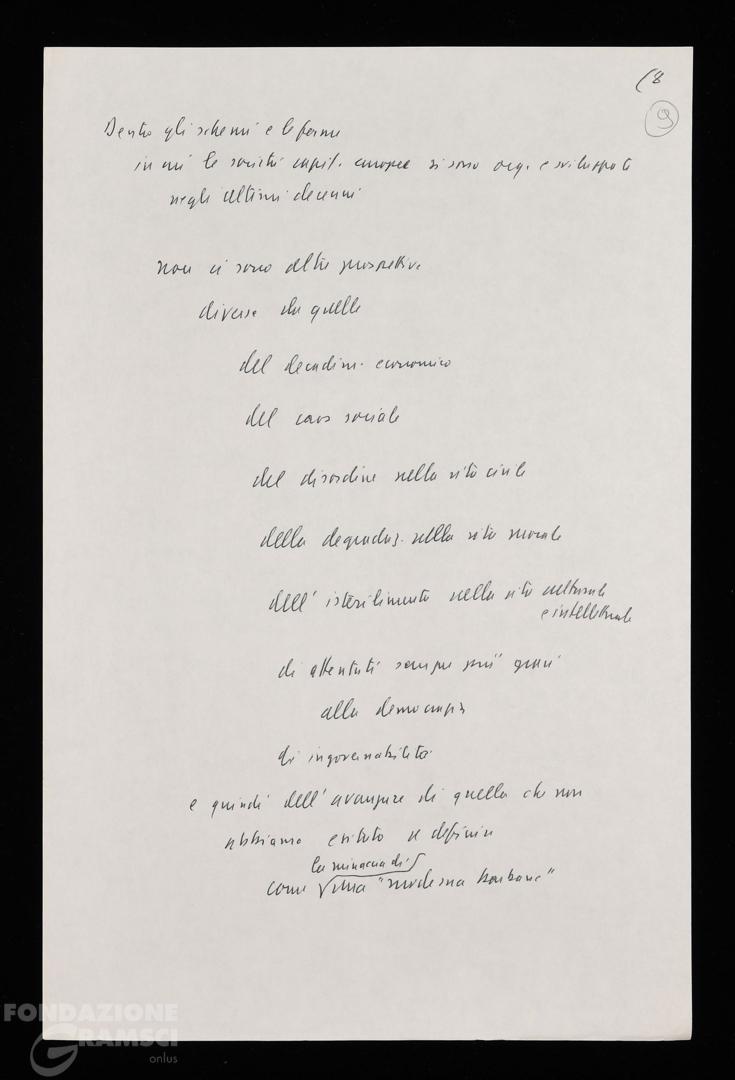 (8
9
Dentro gli schemi e le forme
in cui le società capit. europee si sono org. e sviluppate
negli ultimi decenni
non ci sono altre prospettive
diverse da quelle
del decadim. economico
del caos sociale
del disordine nella vita civile
della degradaz. nella vita morale
dell'isterilimento nella vita culturale
e intellettuale
di attentati sempre più gravi
alla democrazia
di ingovernabilità
e quindi dell'avanzare di quella che non
abbiamo esitato a definire
la minaccia di
come una "moderna barbarie"
FONDAZIONE
GRAMSCI
onlus